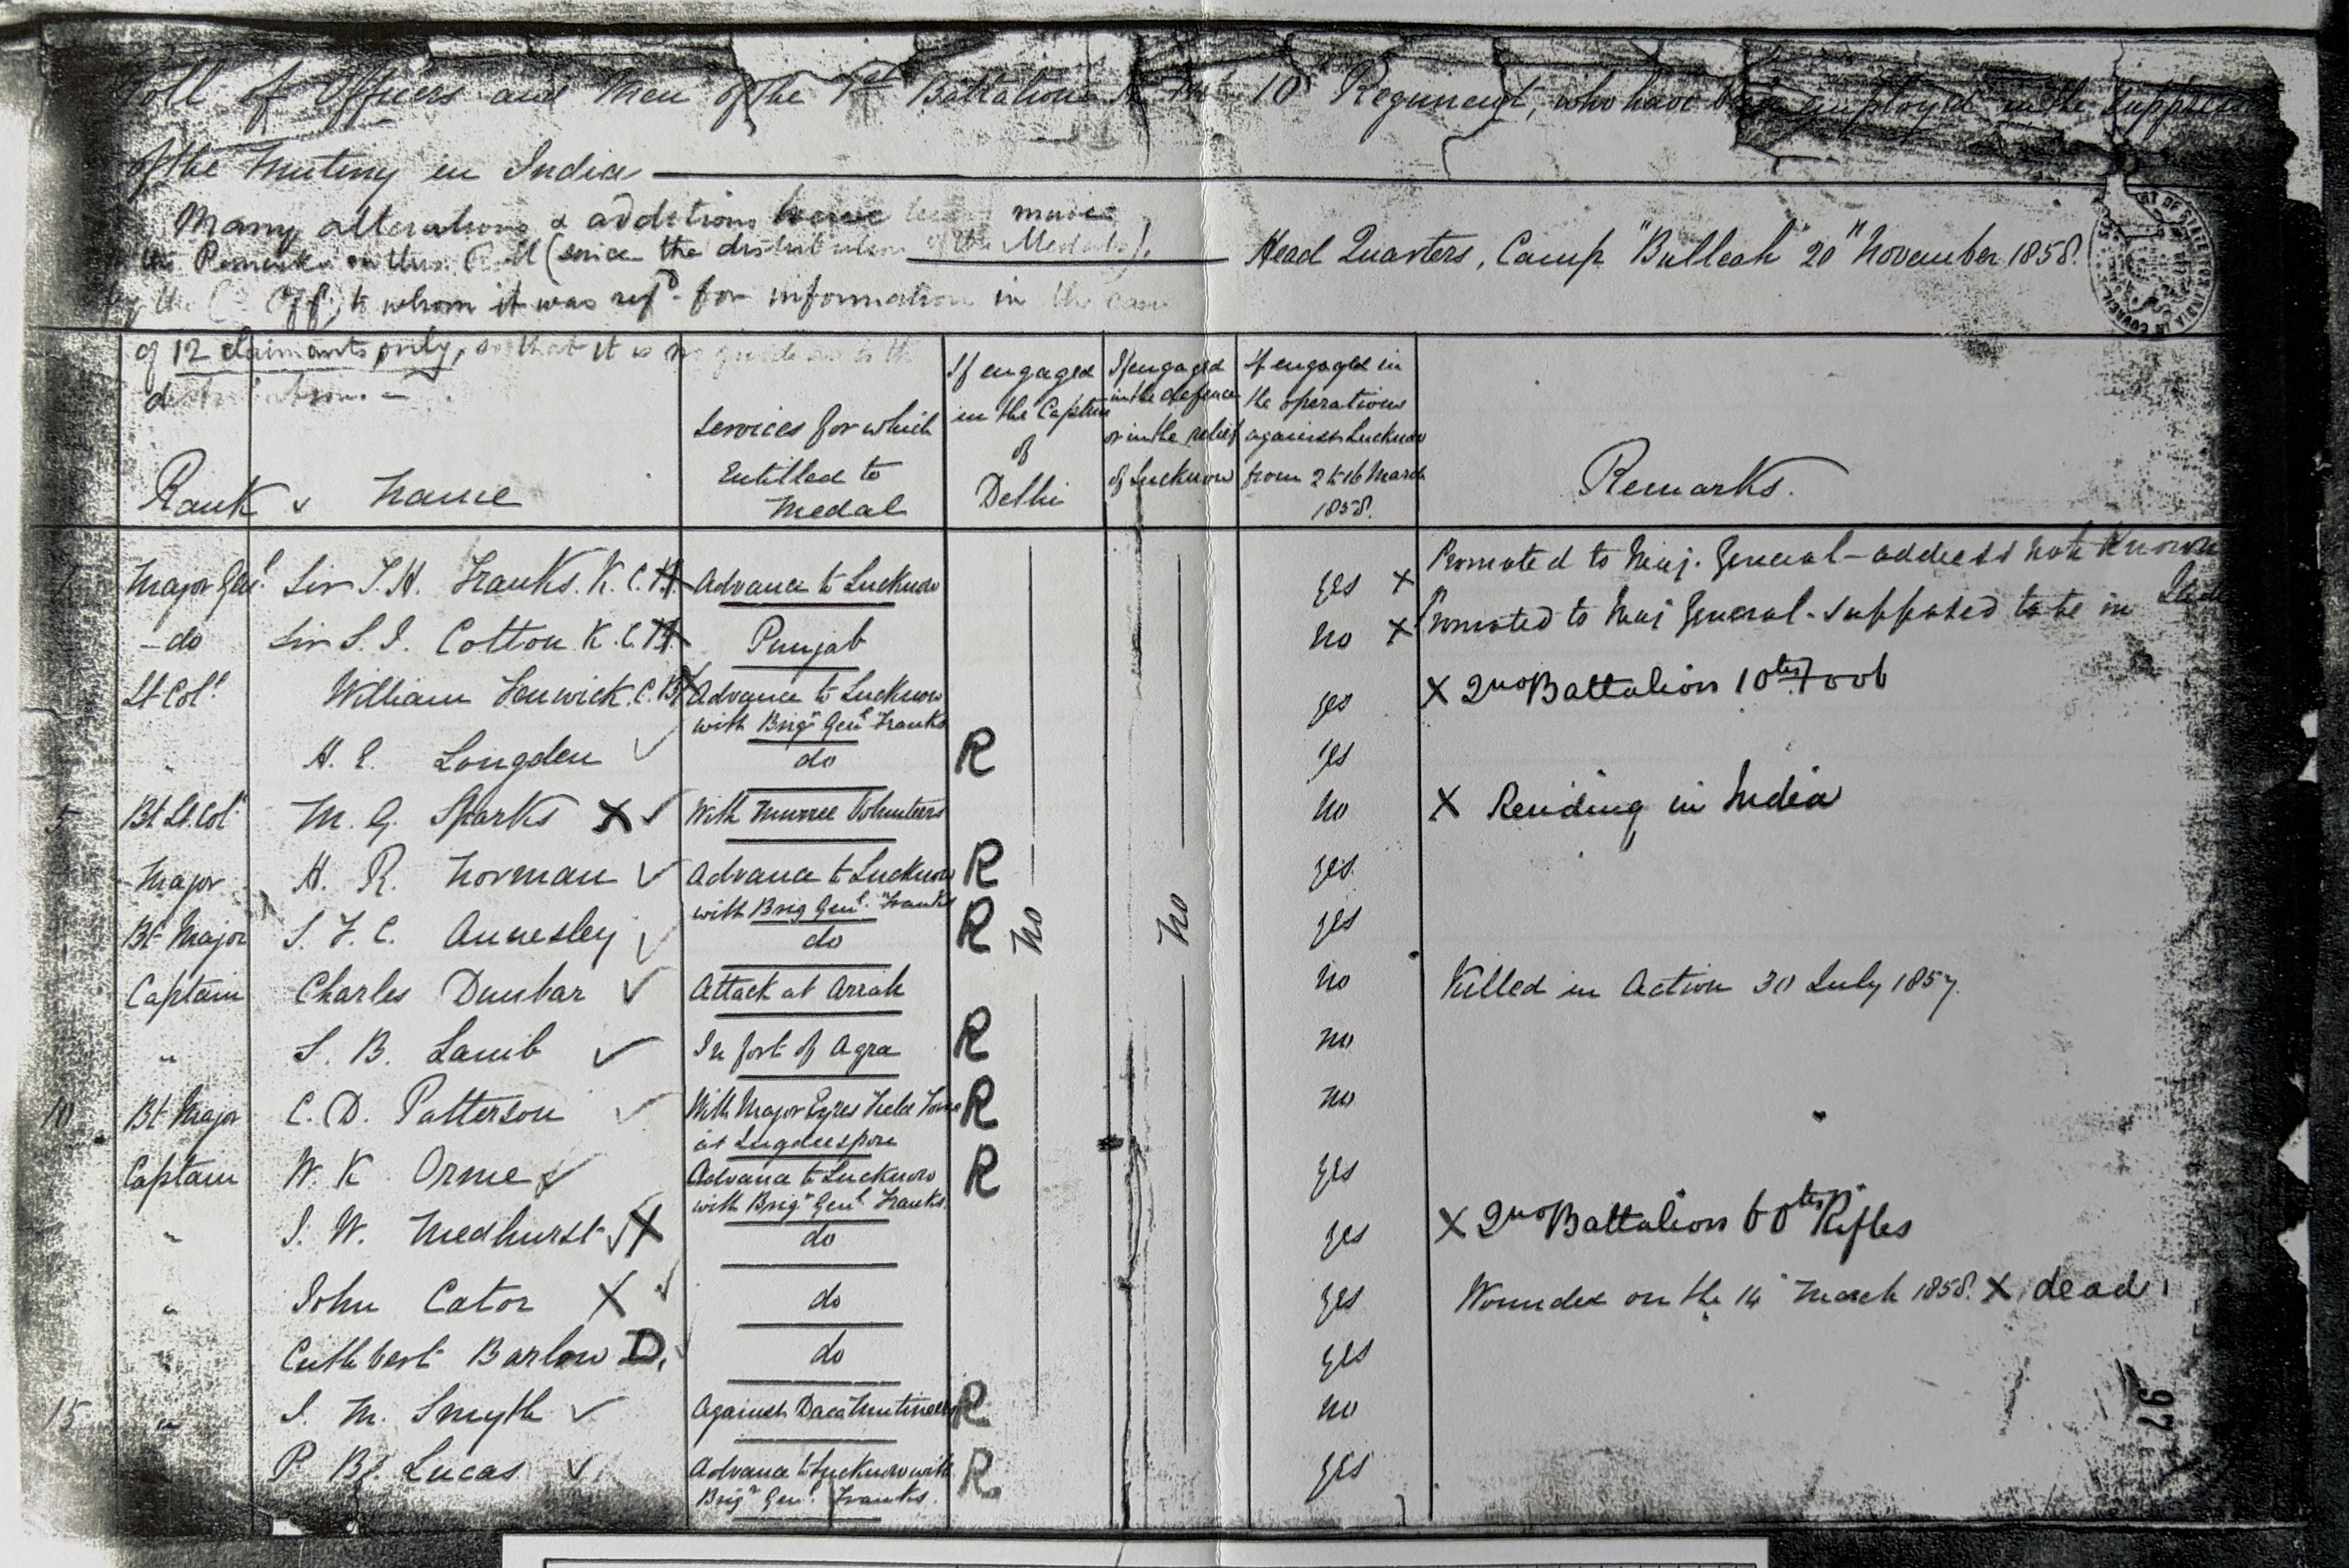 Roll of Officers and Men of the 1st Battalion 10th Regiment, who have been employed in the Suppression
of the Mutiny in India
Many alterations & additions have been made
in the Remarks on this Roll (since the distribution of the Medals),
Head Quarters, Camp "Bulleah" 20th November 1858.
by the C. Off. to whom it was refd. for information in the case
of 12 claimants only, so that it is no guide as to the
distribution. —
Rank & Name
Services for which Entitled to Medal
If engaged in the Capture of Delhi
If engaged in the defence or in the relief of Lucknow
If engaged in the operations against Lucknow from 2 to 16 March 1858.
Remarks.
1 Major Genl. Sir T. H. Franks. K.C.B. X Advance to Lucknow yes X Promoted to Maj. General - address not known
- do Sir S. J. Cotton K.C.B. X Punjab no X Promoted to Maj General - supposed to be in
Lt Coll. William Fenwick. C.B. X Advance to Lucknow with Brigr Genl Franks yes X 2nd Battalion 10th Foot
" H. E. Longden ✓ do R yes
5 Bt Lt. Col. M. G. Sparks X ✓ With Murree Volunteers no X Residing in India
Major H. R. Norman ✓ Advance to Lucknow with Brig Genl. Franks R yes
Bt Major S. F. C. Annesley ✓ do R no no yes
Captain Charles Dunbar ✓ Attack at Arrah no Killed in Action 30 July 1857.
" S. B. Lamb ✓ In fort of Agra R no
10 Bt Major C. D. Patterson ✓ With Major Eyres Field Force at Jugdeespore R no
Captain W. K. Orme ✓ Advance to Lucknow with Brigr Genl. Franks. R yes
" J. W. Medhurst ✓ X do yes X 2nd Battalion 60th Rifles
" John Cator X ✓ do yes Wounded on the 14 March 1858. X dead
" Cuthbert Barlow D. ✓ do yes
15 " J. M. Smyth ✓ Against Daca Mutineers R no
P. B. Lucas ✓ Advance to Lucknow with Brigr Genl. Franks. R yes
97